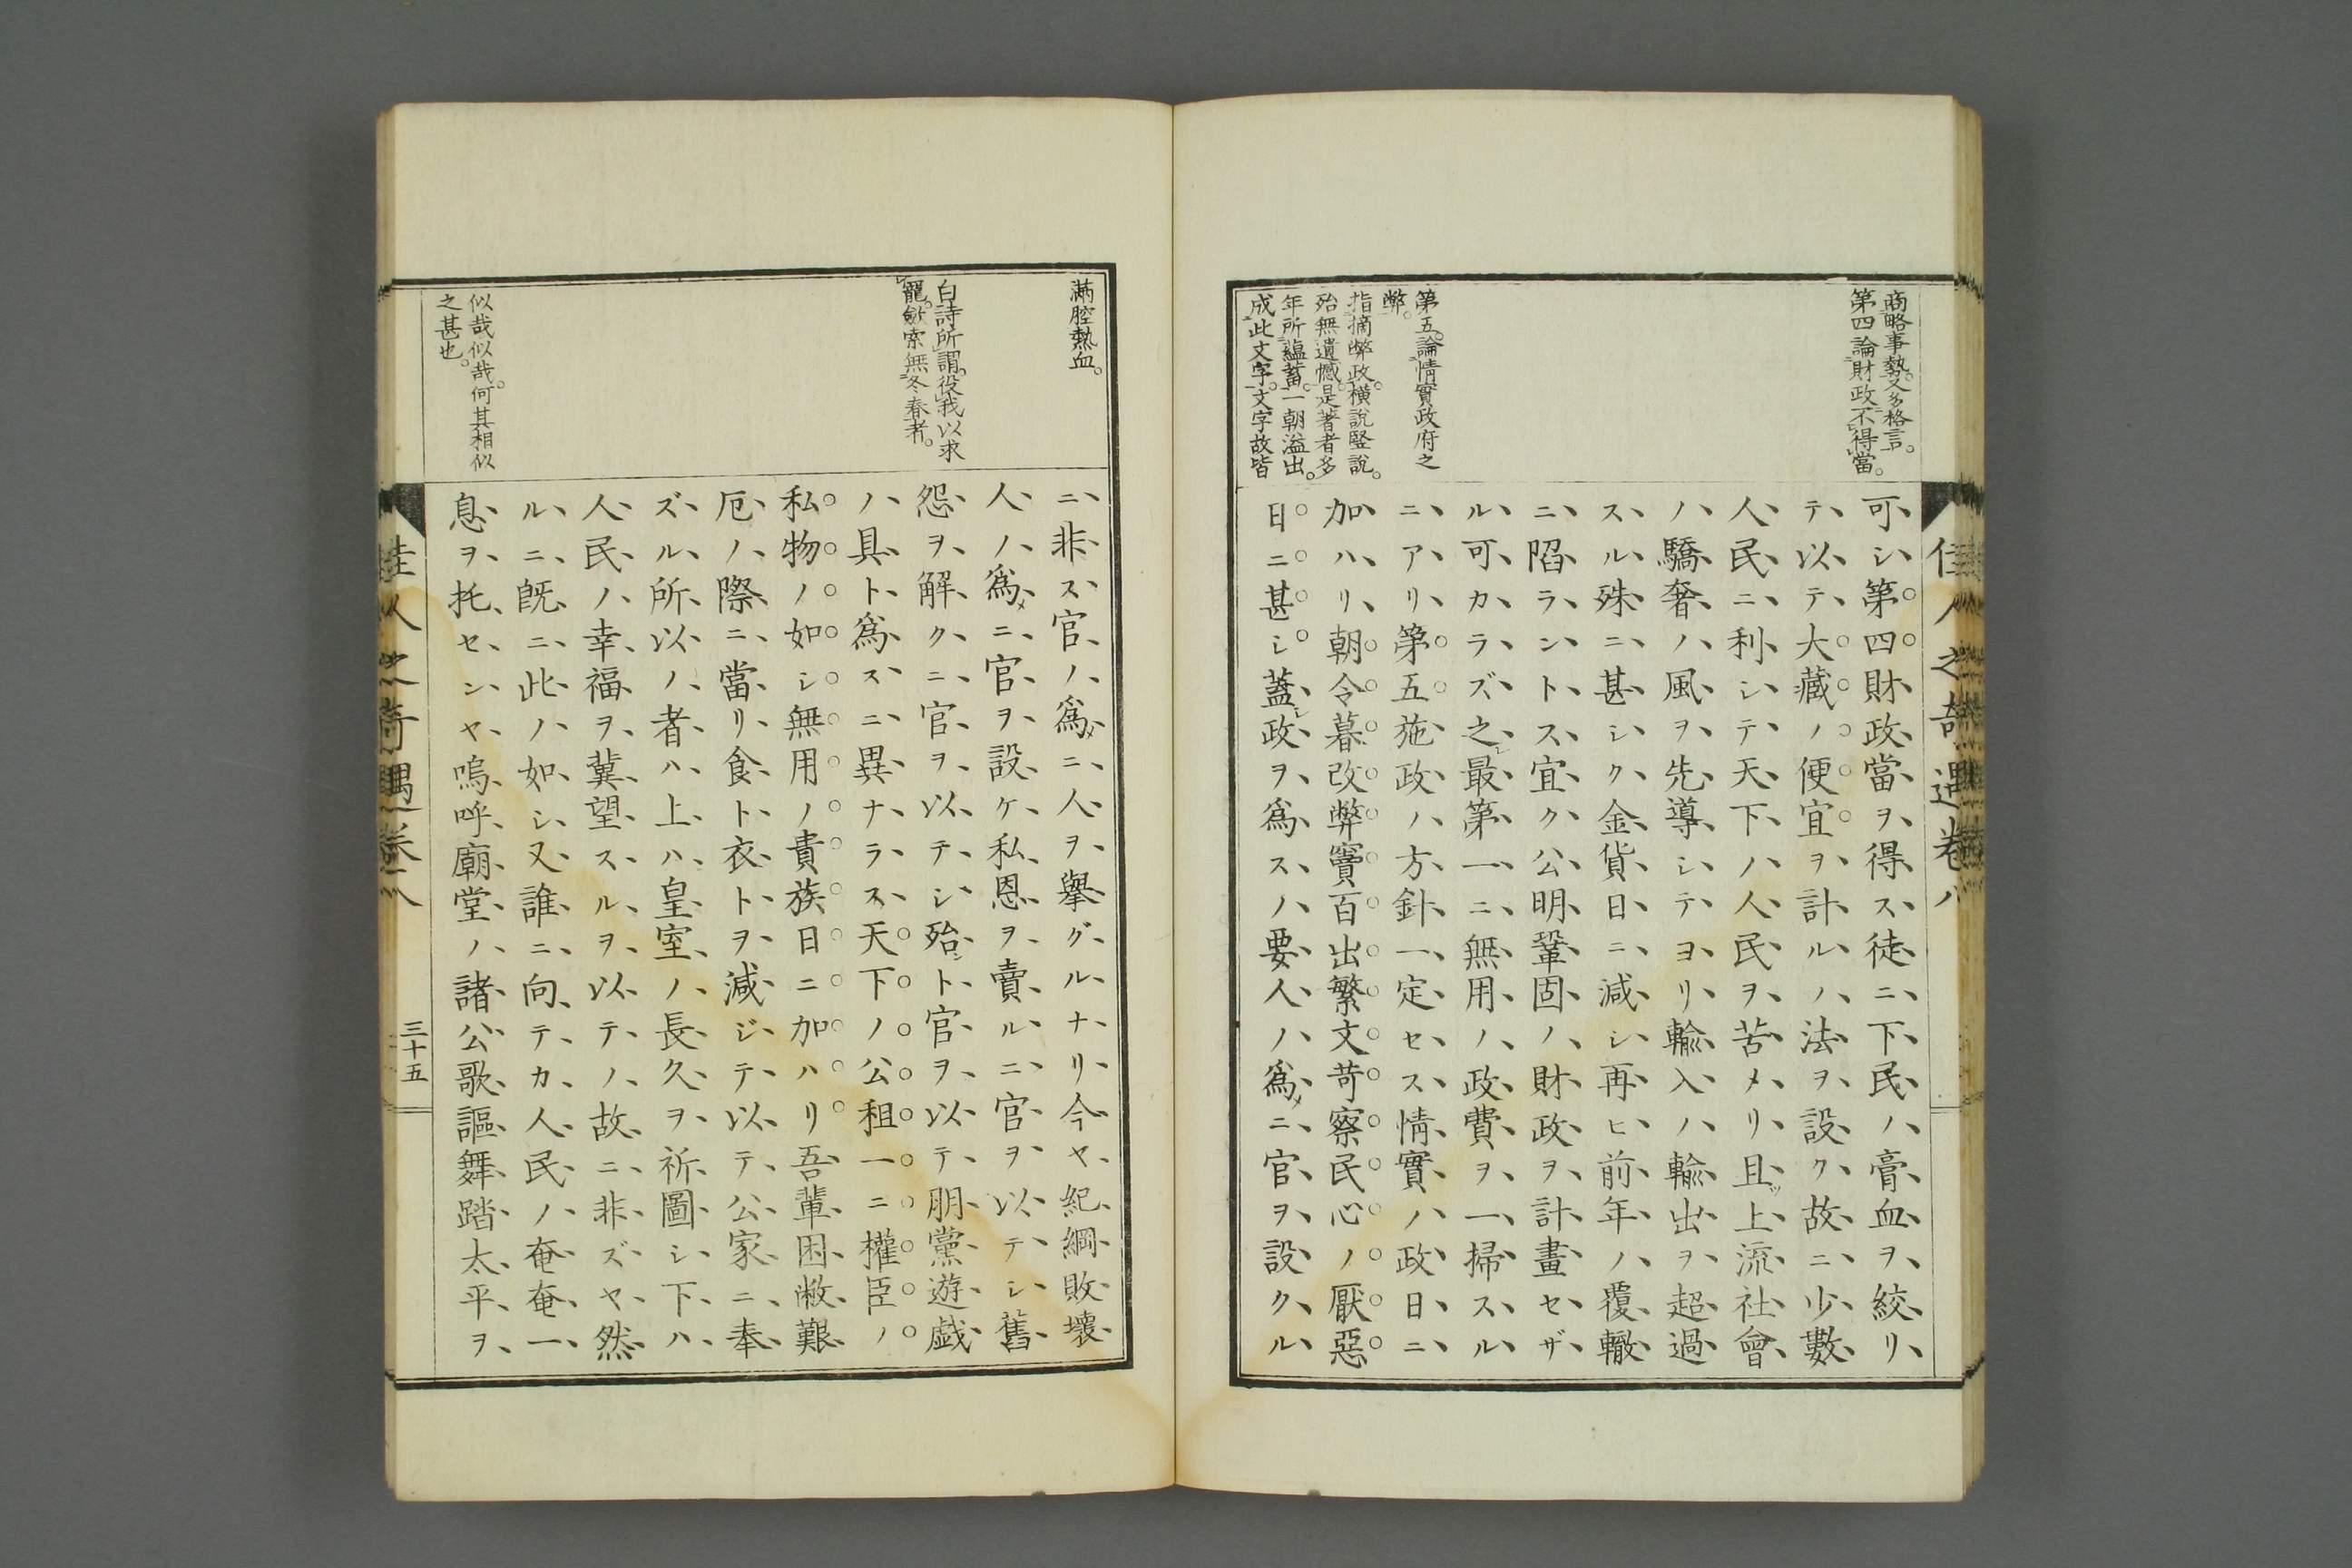 佳人之奇遇卷八
商略事勢。又多格言。
第四論財政不得當。
第五。論情實政府之
弊。
指摘弊政。橫說豎說。
殆無遺憾。是著者多
年所蘊蓄。一朝溢出。
成此文字。文字故皆
可シ第四財政當ヲ得ス徒ニ下民ノ膏血ヲ絞リ
テ以テ大藏ノ便宜ヲ計ルノ法ヲ設ク故ニ少數
人民ニ利シテ天下ノ人民ヲ苦メリ且ツ上流社會
ノ驕奢ノ風ヲ先導シテヨリ輸入ノ輸出ヲ超過
スル殊ニ甚シク金貨日ニ減シ再ヒ前年ノ覆轍
ニ陷ラントス宜ク公明鞏固ノ財政ヲ計畫セザ
ル可カラズ之レ最第一ニ無用ノ政費ヲ一掃スル
ニアリ第五施政ノ方針一定セス情實ノ政日ニ
加ハリ朝令暮改弊竇百出繁文苛察民心ノ厭惡
日ニ甚シ蓋シ政ヲ爲スノ要人ノ爲メニ官ヲ設クル
滿腔熱血。
白詩所謂。役我以求
寵。斂索無冬春者。
似哉似哉。何其相似
之甚也。
ニ非ス官ノ爲メニ人ヲ擧グルナリ今ヤ紀綱敗壞
人ノ爲メニ官ヲ設ケ私恩ヲ賣ルニ官ヲ以テシ舊
怨ヲ解クニ官ヲ以テシ殆ント官ヲ以テ朋黨遊戯
ノ具ト爲スニ異ナラス天下ノ公租一ニ權臣ノ
私物ノ如シ無用ノ貴族日ニ加ハリ吾輩困敝艱
厄ノ際ニ當リ食ト衣トヲ減ジテ以テ公家ニ奉
ズル所以ノ者ハ上ハ皇室ノ長久ヲ祈圖シ下ハ
人民ノ幸福ヲ冀望スルヲ以テノ故ニ非ズヤ然
ルニ既ニ此ノ如シ又誰ニ向テカ人民ノ奄奄一
息ヲ托センヤ嗚呼廟堂ノ諸公歌謳舞踏太平ヲ
佳人之奇遇卷八
三十五